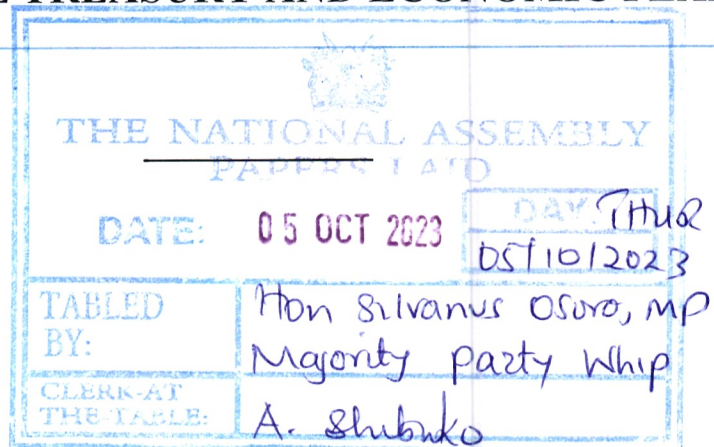 TREASURY AND ECONOMIC
THE NATIONAL ASSEMBLY
PAPERS LAID
DATE: 05 OCT 2023 DAY: THUR
05/10/2023
TABLED BY: Hon Silvanus Osoro, MP
Majority Party Whip
CLERK-AT THE-TABLE: A. Shibuko